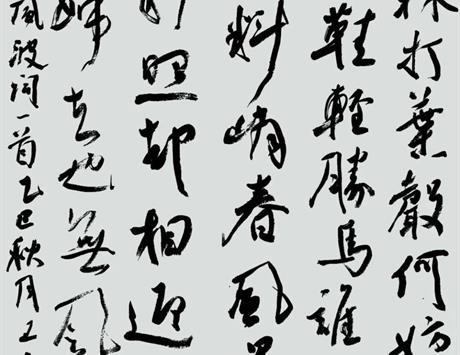 林打葉聲何妨
鞋輕勝馬誰
料峭春風
照却相迎
歸去也無風
風波词一首乙巳秋月